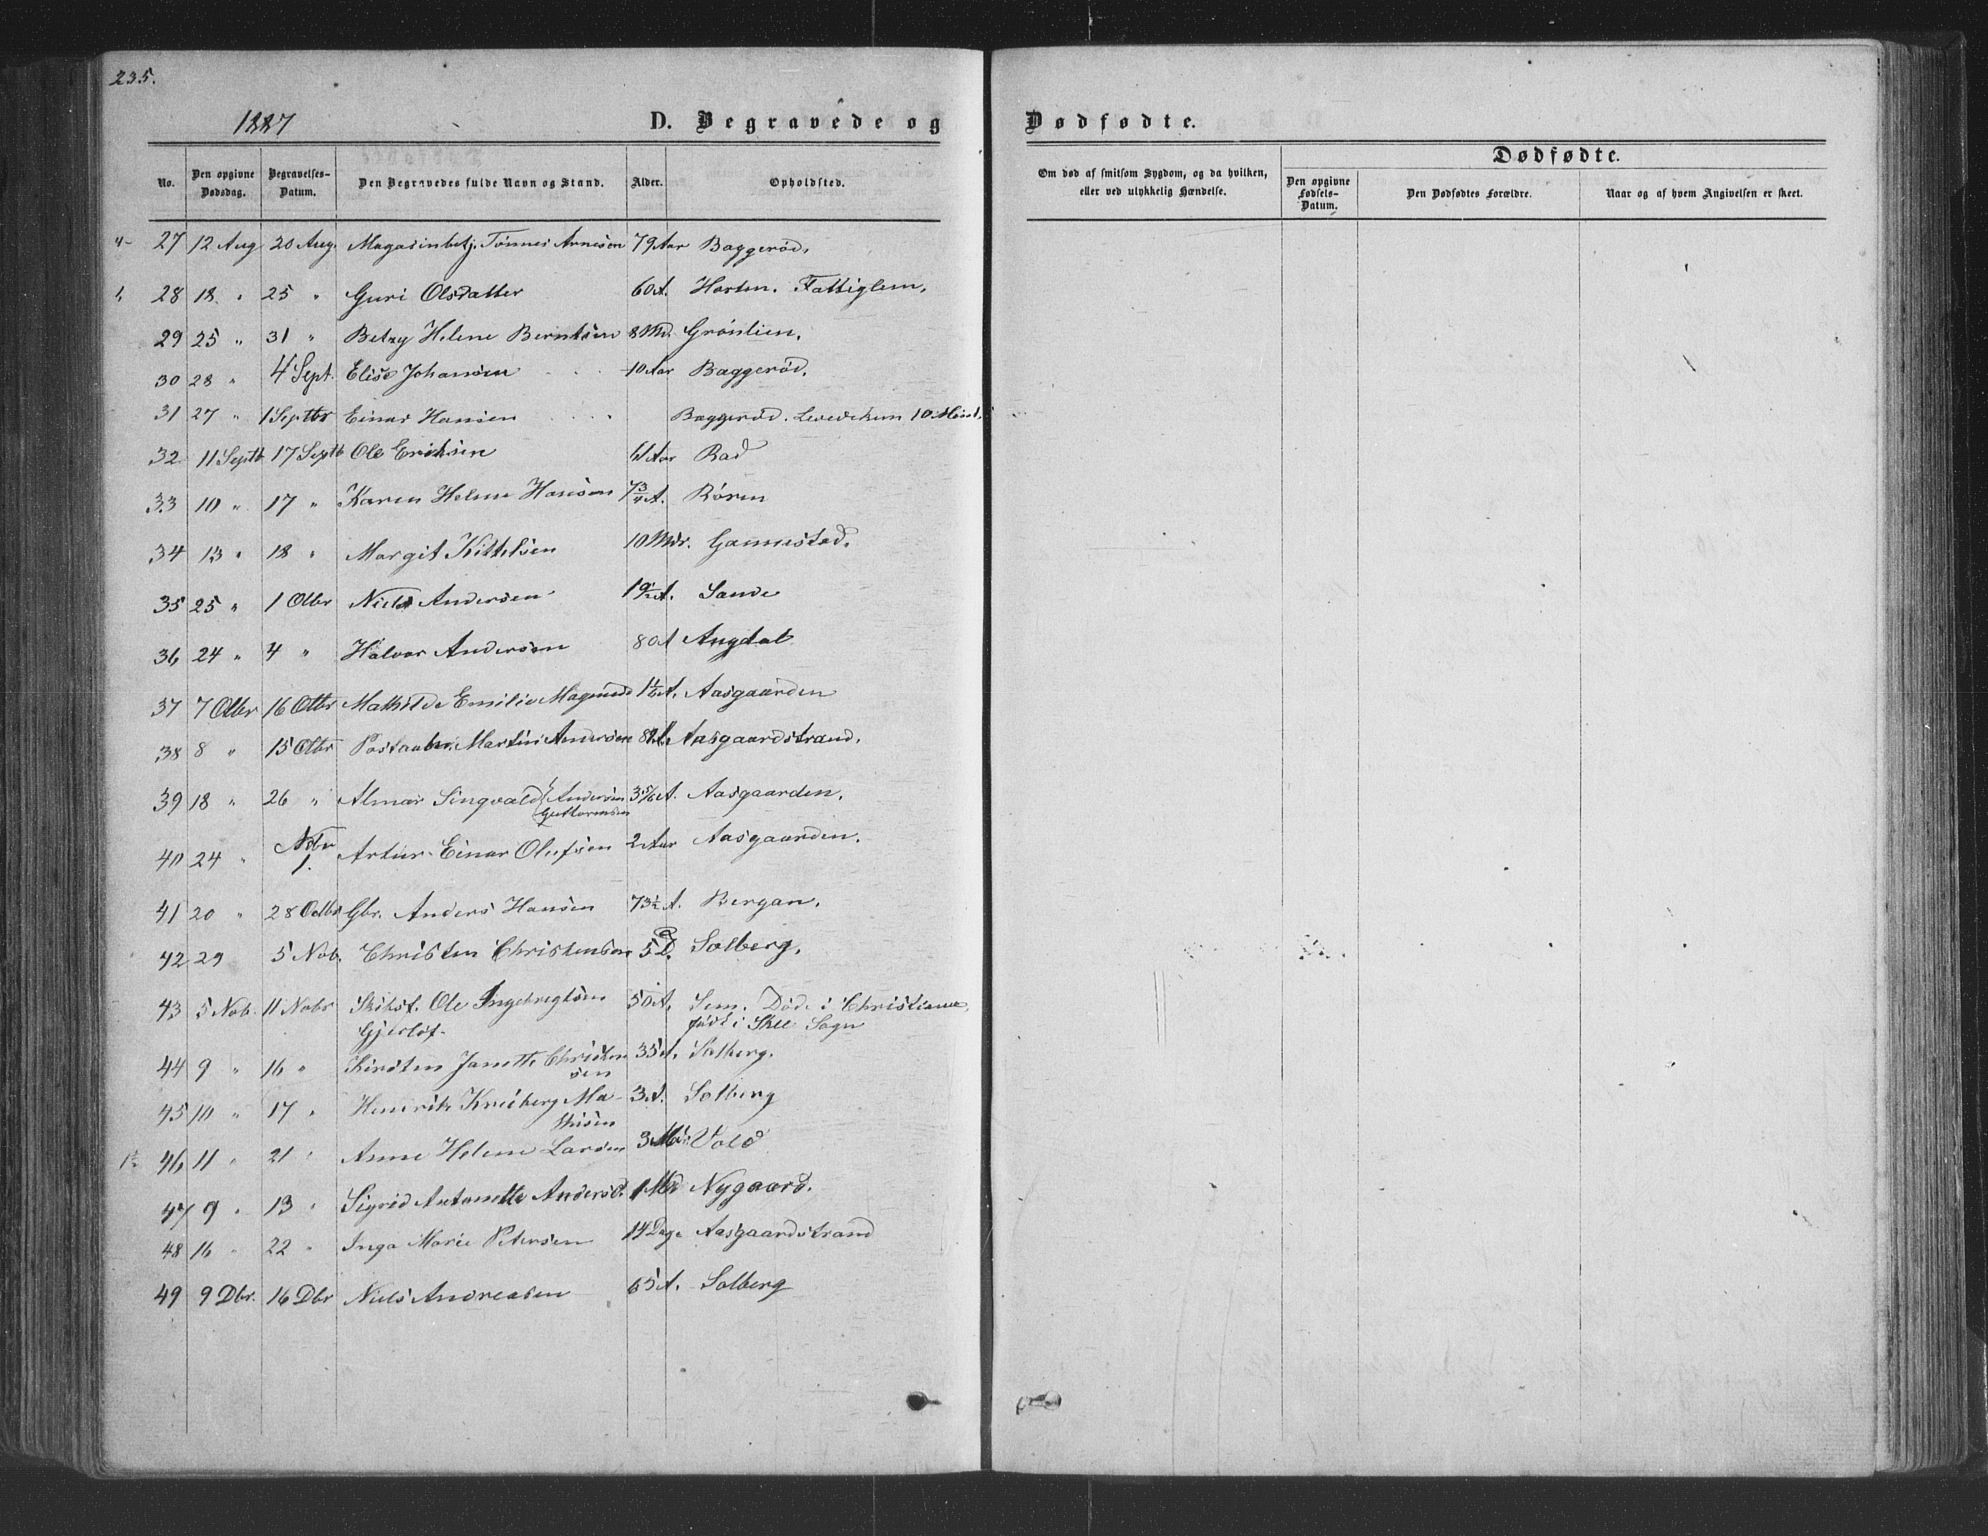 235.
1887 D. Begravede og Dødfødte.
No. Den opgivne Dødsdag. Begravelses-Datum. Den Begravedes fulde Navn og Stand. Alder. Opholdsted.
Om død af smitsom Sygdom, og da hvilken, eller ved ulykkelig Hændelse.
Dødfødte.
Den opgivne Fødsels-Datum. Den Dødfødtes Forældre. Naar og af hvem Angivelsen er skeet.
27 12 Aug 20 Aug Magasinbetj. Tönnes Arnesen 79 Aar Baggeröd.
28 18 " 25 " Guri Olsdatter 60 A. Horten. Fattiglem.
29 25 " 31 " Betzy Helene Berntsen 8 Md. Grönlien.
30 28 " 4 Sept. Elise Johansen 10 Aar Baggeröd.
31 27 " 1 Septbr Einar Hansen Baggeröd. Levede kun 10 Minut.
32 11 Septb 17 Septb Ole Eriksen 61 Aar Rad
33 10 " 17 " Karen Helene Hansen 7 3/4 A. Rören
34 13 " 18 " Margit Kittelsen 10 Mdr. Gannestad.
35 25 " 1 Otbr Niels Andersen A. Sande
36 24 " 4 " Halvor Andersen 80 A Augdal
37 7 Otbr 16 Otbr Mathilde Emilie A. Aasgaarden
38 8 " 15 Otbr Postaabn. Martin Andersen Aasgaardstrand.
39 18 " 26 " Almar Singvald Andersen 3 5/6 A. Aasgaarden.
Guttormsen
40 24 " Nbr 1. Artur Einar Olufsen 2 Aar Aasgaarden.
41 20 " 28 Octbr Gbr. Anders Hansen 73 1/2 A. Bergan.
42 29 5 Nob. Christen Christensen 5 D. Solberg.
43 5 Nob. 11 Nobr Skibsf. Ole Ingebregtsen 50 A. Sem. Döde i Christiania,
Gjerløf. født i Skee Sogn
44 9 " 16 " Kirsten Janette Christen 35 A. Solberg.
sen
45 10 " 17 " Henrik Kreiberg Ma- 3 A. Solberg
thisen
46 11 " 21 " Anne Helene Larsen 3 Mdr Vold
47 9 " 13 " Sigrid Antonette Andersd. 1 Md Nygaard.
48 16 " 22 " Inga Marie Petersen 14 Dage Aasgaardstrand
49 9 Dbr. 16 Dbr Niels Andreasen 65 A. Solberg